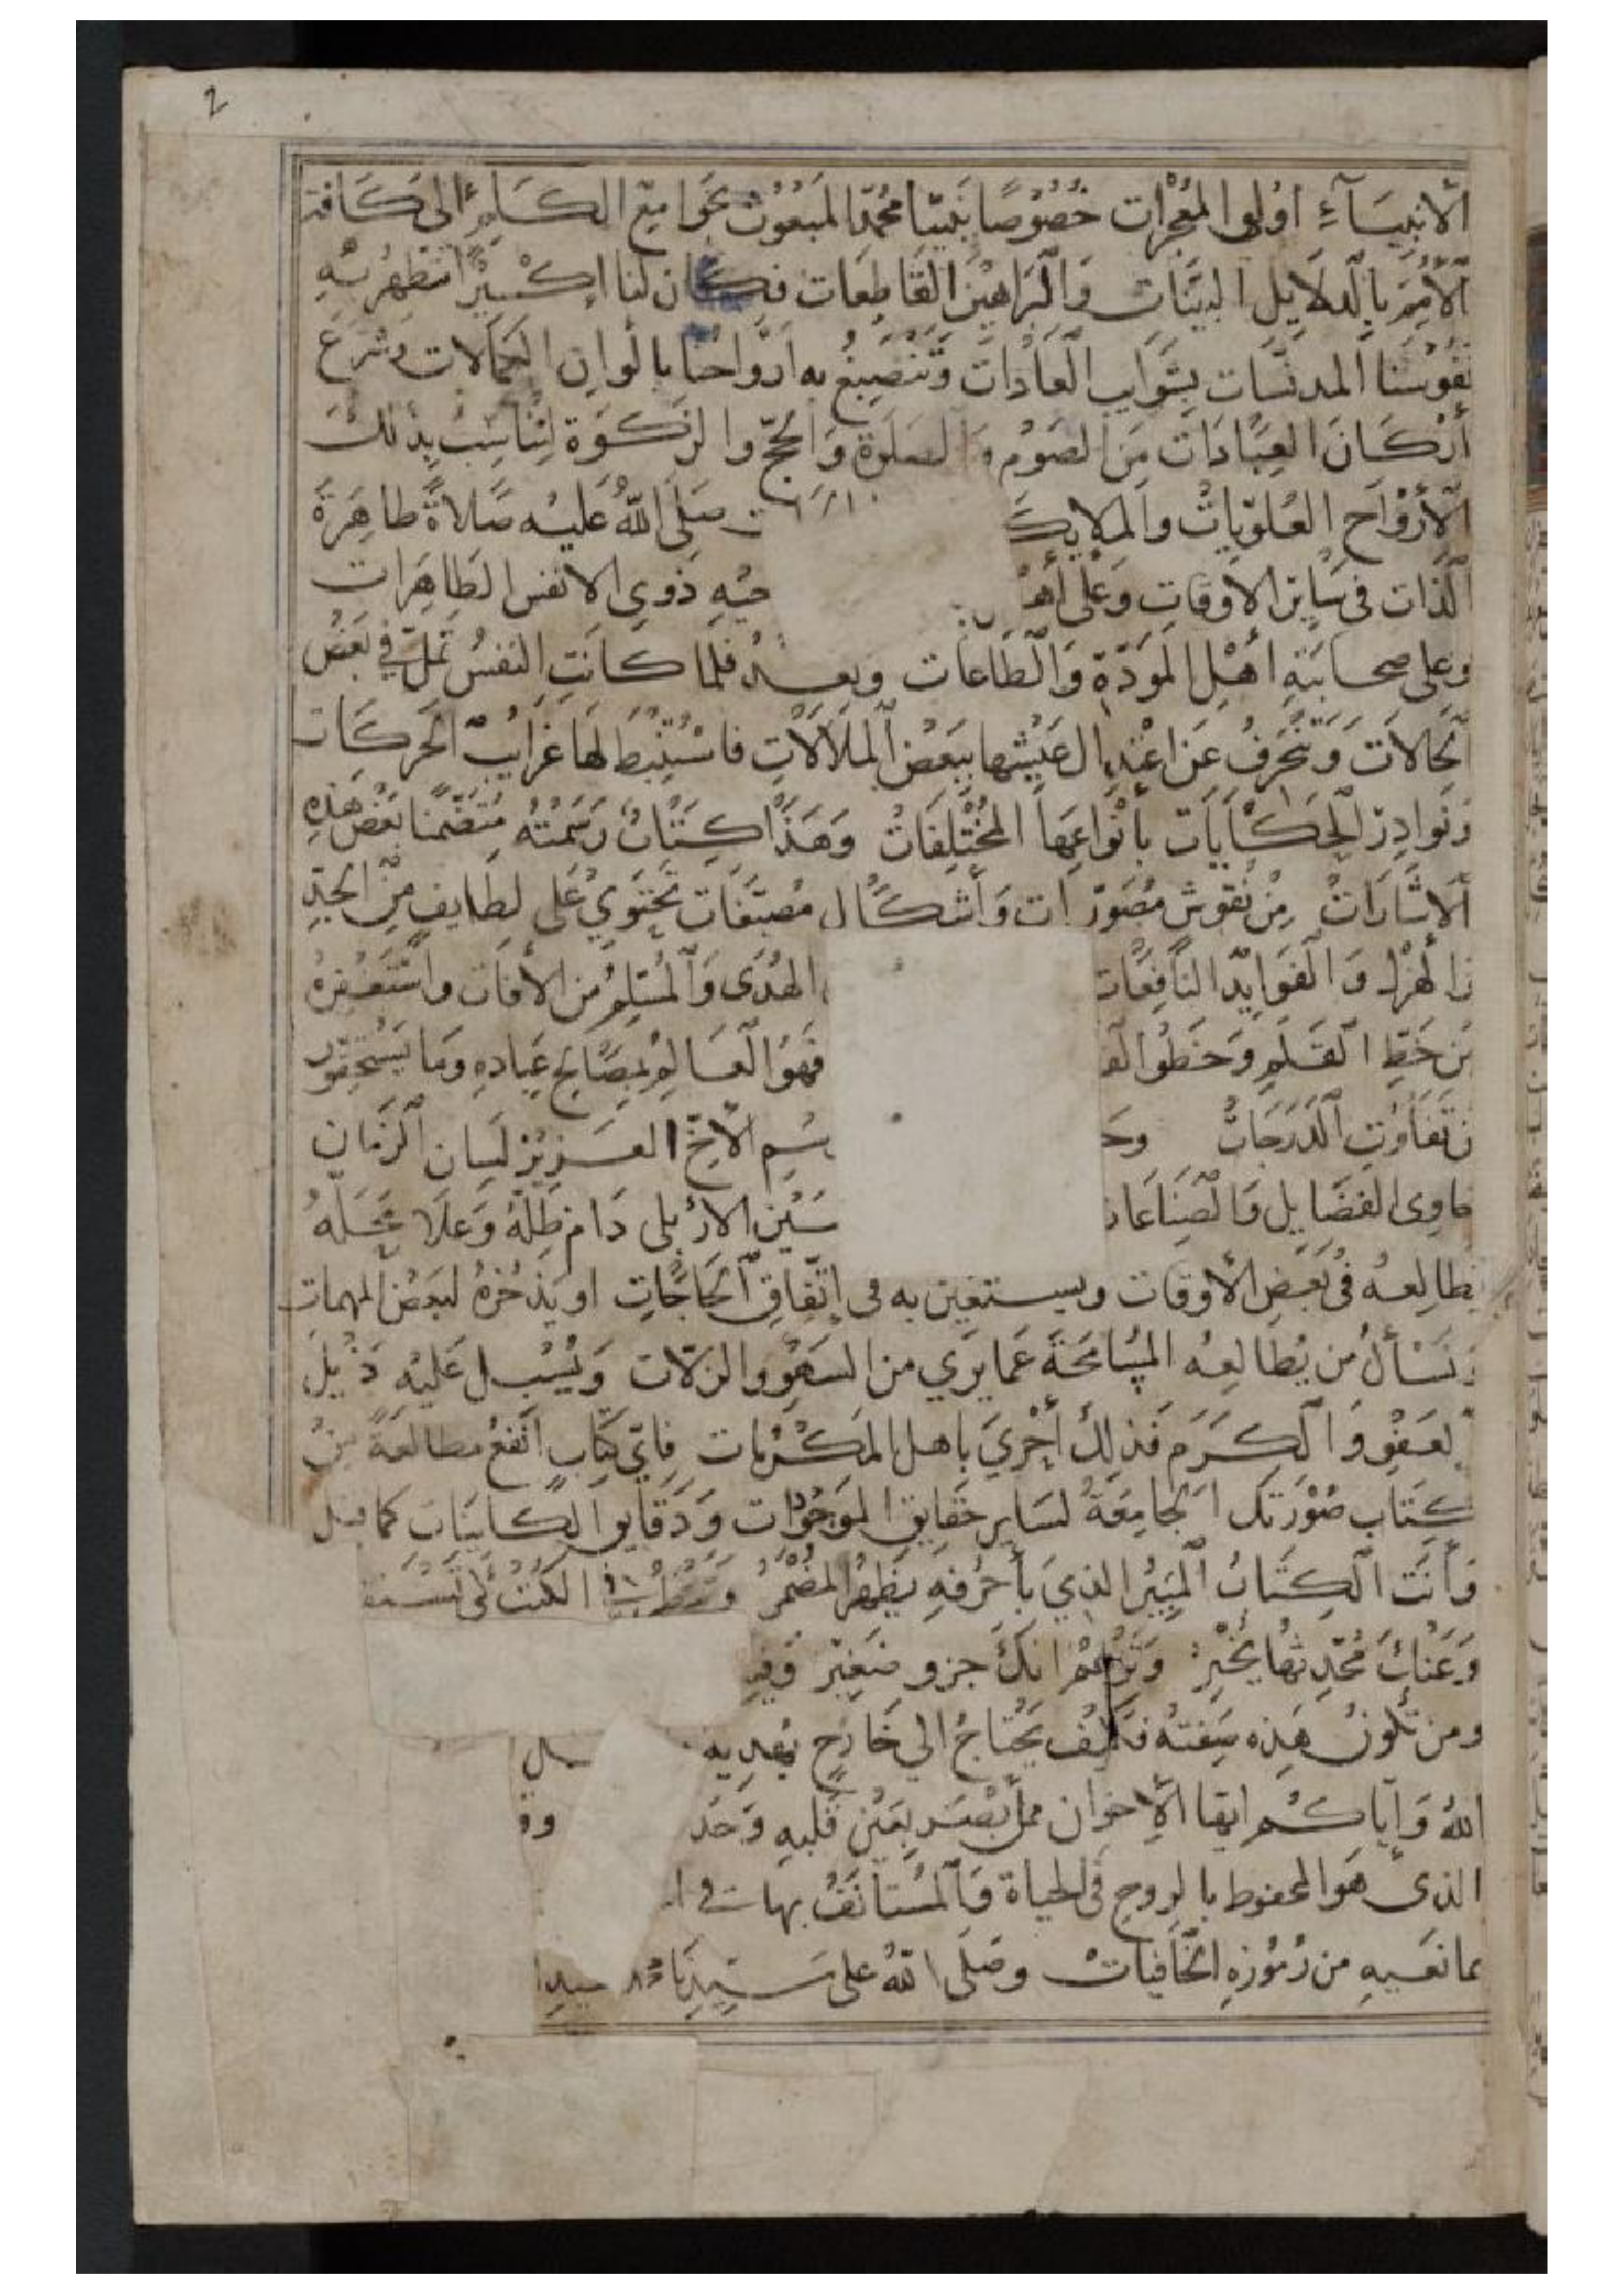 2
الأنبِيَآءِ اوُلوا المُعْجِزات خُصُوصًا نَبِيّنا مُحمّد المَبعُوث بجَوامِع الكَلِم الى كَافة
الأمَم بِالدلَايل البيّنَات وَالبَرَاهِين القَاطِعَات فكان لنا إكْسيرًا تَطهُر بِهِ
نفُوسُنا المدنّسَات بِشَوَايب العَادَات وَتنصَبغُ به ارْوَاحُنا بالوان الكمالات وشرَع
أرْكَانَ العِبَادَات مِن الصَومُ وَالصَلوة وَالحجّ والزكوَة لتنَاسَبَ بذلك
الأرْوَاح العُلوّيات والملايك صَلى اللّه عَليْه صَلاةً طاهِرَة
الذات فى سَاير الاوقاتِ وَعَلى أهْ حبْهِ ذوي الانفس الطاهِرات
وعلى صحابَتِهِ أهْل المَودّةِ وَالطَاعَات وبعد فلما كانتِ النفسُ تملّ في بَعْض
الحَالات وَتنْحَرفُ عَن اعتِدال عَيْشها ببَعضِ الملالات فاستُنْبط لها غرَايبَ الحَركَات
ونوادِر الحِكَايَات بِأنْوَاعِهَا المُخْتلفات وَهَذا كِتَابٌ رَسَمْتهُ مُتَضَمنا بَعْض هَذِهِ
الاشَارَات مِنْ نقوش مُصَوّرات وَأشكَال مُصَنّفَات تحتَوي عَلى لطايفٍ مِن الجدِّ
والهزْل وَالفَوَايد النَافِعَات الهُدَى وَالمُسَلِّم من الأفات واسْتَغفِرهُ
مِن خَطِّ القَلمِ وَخطوُ الق فهوَ العَالِم بمصَالح عِبادهِ وَمَا يسْتحقوُن
من تفاوُتِ الدَرَجَات وخ سْمِ الأخ العَزِيز لسَان الزمَان
حاوِى الفضَايل وَالصِناعَات سَين الاربلى دَام ظلهُ وَعلَا مَحلهُ
يطالِعهُ فى بَعض الأوقات ويستعين به فى اتفاق الحَاجَاتِ او يَذخُرهُ لبَعض المهمات
ونسْألُ من يُطالِعهُ المسَامَحَة عَما يرَي من السَهْو والزلات وَيُسْبل عَليْهِ ذيلَ
العَفْو وَالكرَم فذلِكَ أحْرَي باهل المكرُمات فاىّ كتابٍ انفعُ مطالعَة مِنْ
كِتَاب صُوْرَتك الجامِعَةُ لسَاير حقايق الموجُودَات وَدَقايق الكاينَات كما قيل
وَأنت الكِتَابُ المبيْن الذي بأحْرُفهِ يَظهَر المُضْمَرُ وَ فى الكتب
وَعَنْكَ مُحَدِثها يُخْبِرُ وَتزْعُمُ انكَ جزو صَغِيْر وَفِيـ
ومن تكونُ هذِه صِفَتهُ فكيف يَحْتاجُ الي خَارِجٍ يُهْديهِ
اللهُ وَإياكم ايها الإخوان ممّن أبْصَر بعَيْن قلبهِ وَحَد وو
الذى هوَ المحفوظ بالروح فى الحياة وَالمُسْتأنفُ بهات في ا
بما نعَيهِ من رُمُوْزهِ الخَافيَات وَصَلى اللّهُ على سَيّدِنا محمد سيد